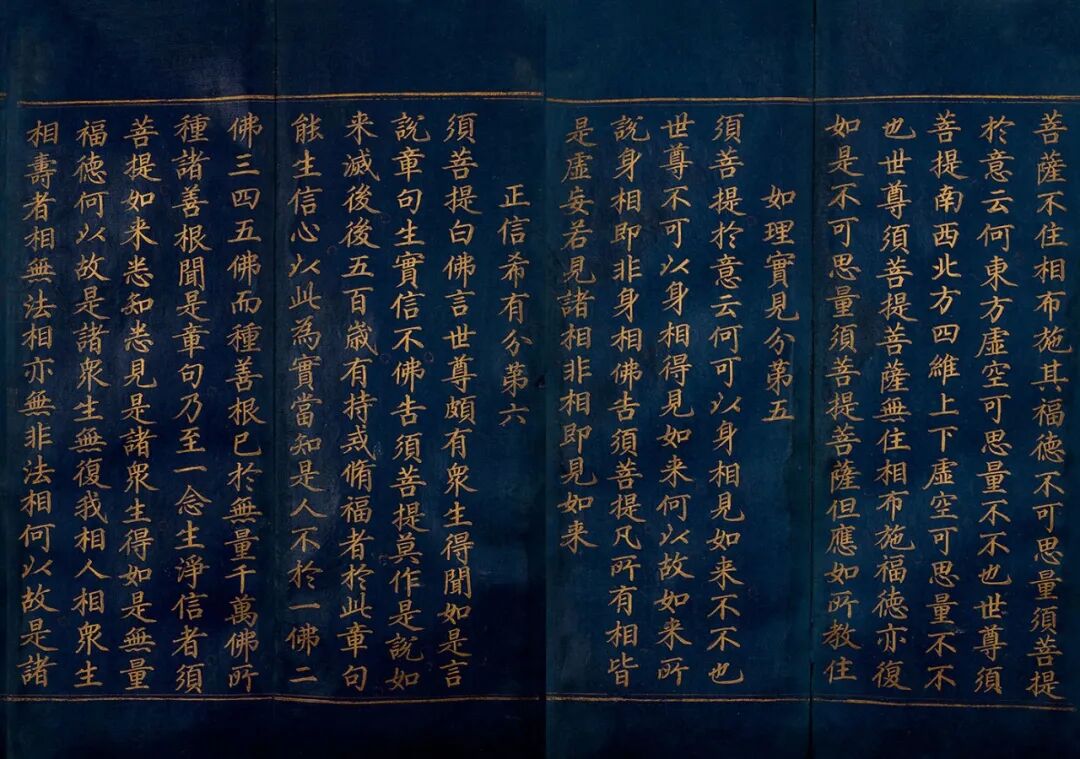 菩薩不住相布施其福德不可思量須菩提
於意云何東方虛空可思量不不也世尊須
菩提南西北方四維上下虛空可思量不不
也世尊須菩提菩薩無住相布施福德亦復
如是不可思量須菩提菩薩但應如所教住
如理實見分第五
須菩提於意云何可以身相見如来不不也
世尊不可以身相得見如来何以故如来所
說身相即非身相佛告須菩提凡所有相皆
是虛妄若見諸相非相即見如来
正信希有分第六
須菩提白佛言世尊頗有衆生得聞如是言
說章句生實信不佛告須菩提莫作是說如
来滅後後五百歲有持戒脩福者於此章句
能生信心以此為實當知是人不於一佛二
佛三四五佛而種善根已於無量千萬佛所
種諸善根聞是章句乃至一念生淨信者須
菩提如来悉知悉見是諸衆生得如是無量
福德何以故是諸衆生無復我相人相衆生
相壽者相無法相亦無非法相何以故是諸